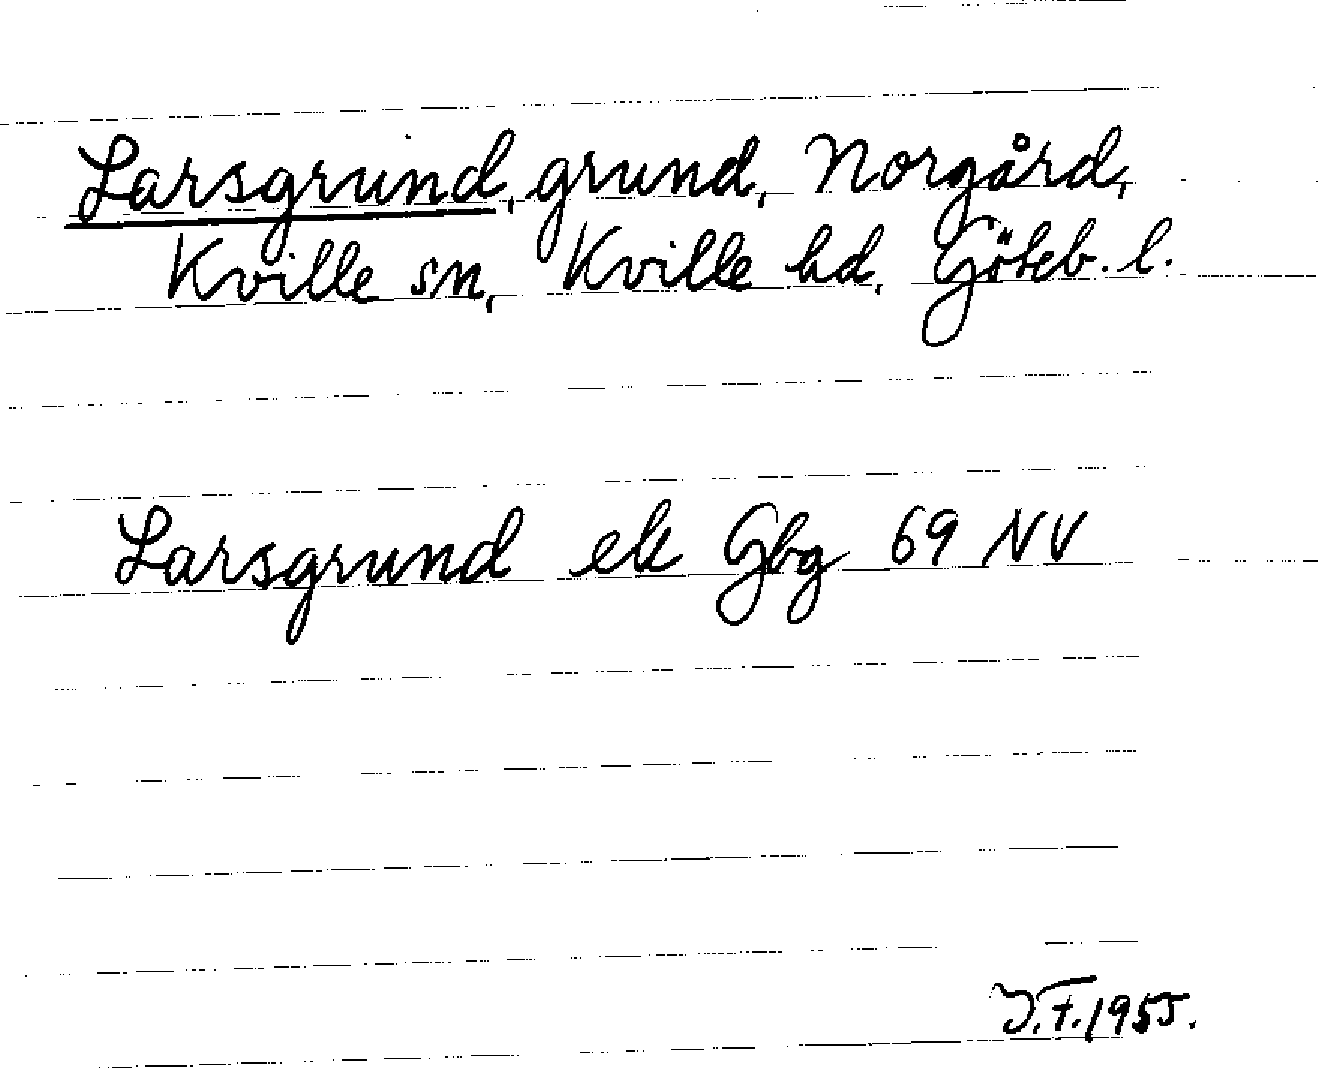 Larsgrund, grund, Norgård,
Kville sn, Kville hd, Göteb. l.
Larsgrund ek Gbg 69 NV
J.F. 1955.